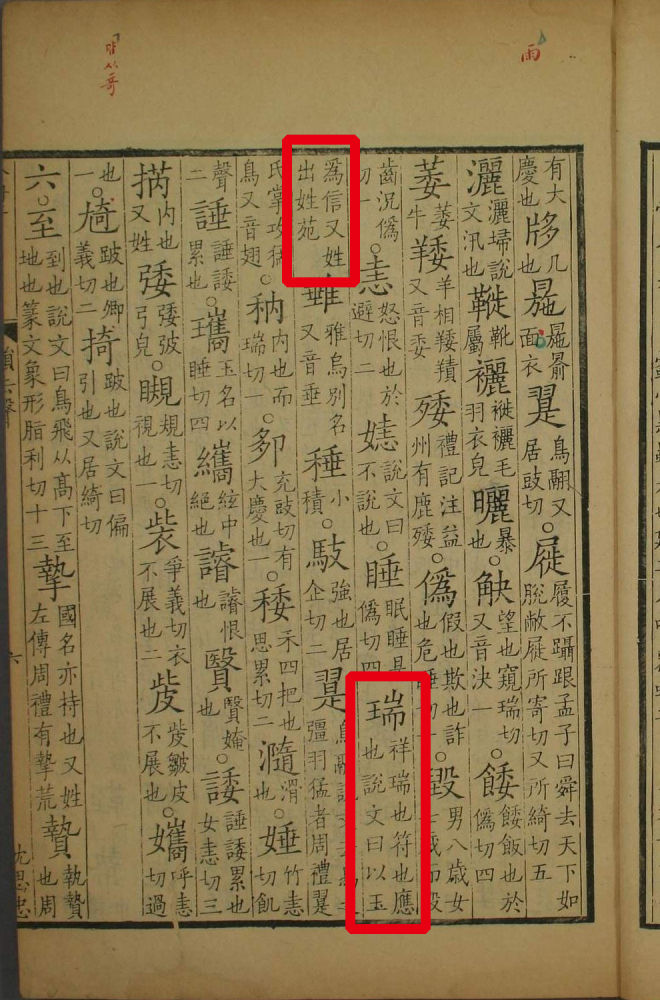 有大慶也 几也 面衣 翨鳥翮又居豉切○屣履不躡跟孟子曰舜去天下如脫敝屣所寄切又所綺切五
灑灑埽說文汛也 靴屬襹褷襹毛羽衣皃曬暴也觖望也窺瑞切又音決一○餧餧飯也於偽切四
萎萎牛 羊相 又音委 禮記注益州有鹿 ○僞假也欺也詐也危睡切一毀男八歲女七歲而毀
齒況偽切一○恚怒恨也於避切二 說文曰不說也○睡眠睡是偽切四瑞祥瑞也符也應也說文曰以玉
爲信又姓出姓苑 雅烏別名又音垂 小積○馶強也居企切二翨鳥翮說文云鳥之彊羽猛者周禮翨
氏掌攻猛鳥又音翅○枘內也而瑞切一○卶充豉切有大慶也一○ 禾四把也思累切二瀡滑也○娷竹恚切飢
聲二諈諈諉累也○ 玉名以睡切四纗絃中絕也 恨也贀賢媕也○諉諈諉累也女恚切三
內也又姓 弓皃○瞡規恚切視也一○ 爭義切衣不展也二 皺皮不展也○孈呼恚切過
也一○ 跛也卿義切二掎跛也說文曰偏引也又居綺切
六○至到也說文曰鳥飛从高下至地也篆文象形脂利切十三摯國名亦持也又姓左傳周禮有摯荒贄執贄也周
沈思忠
雨